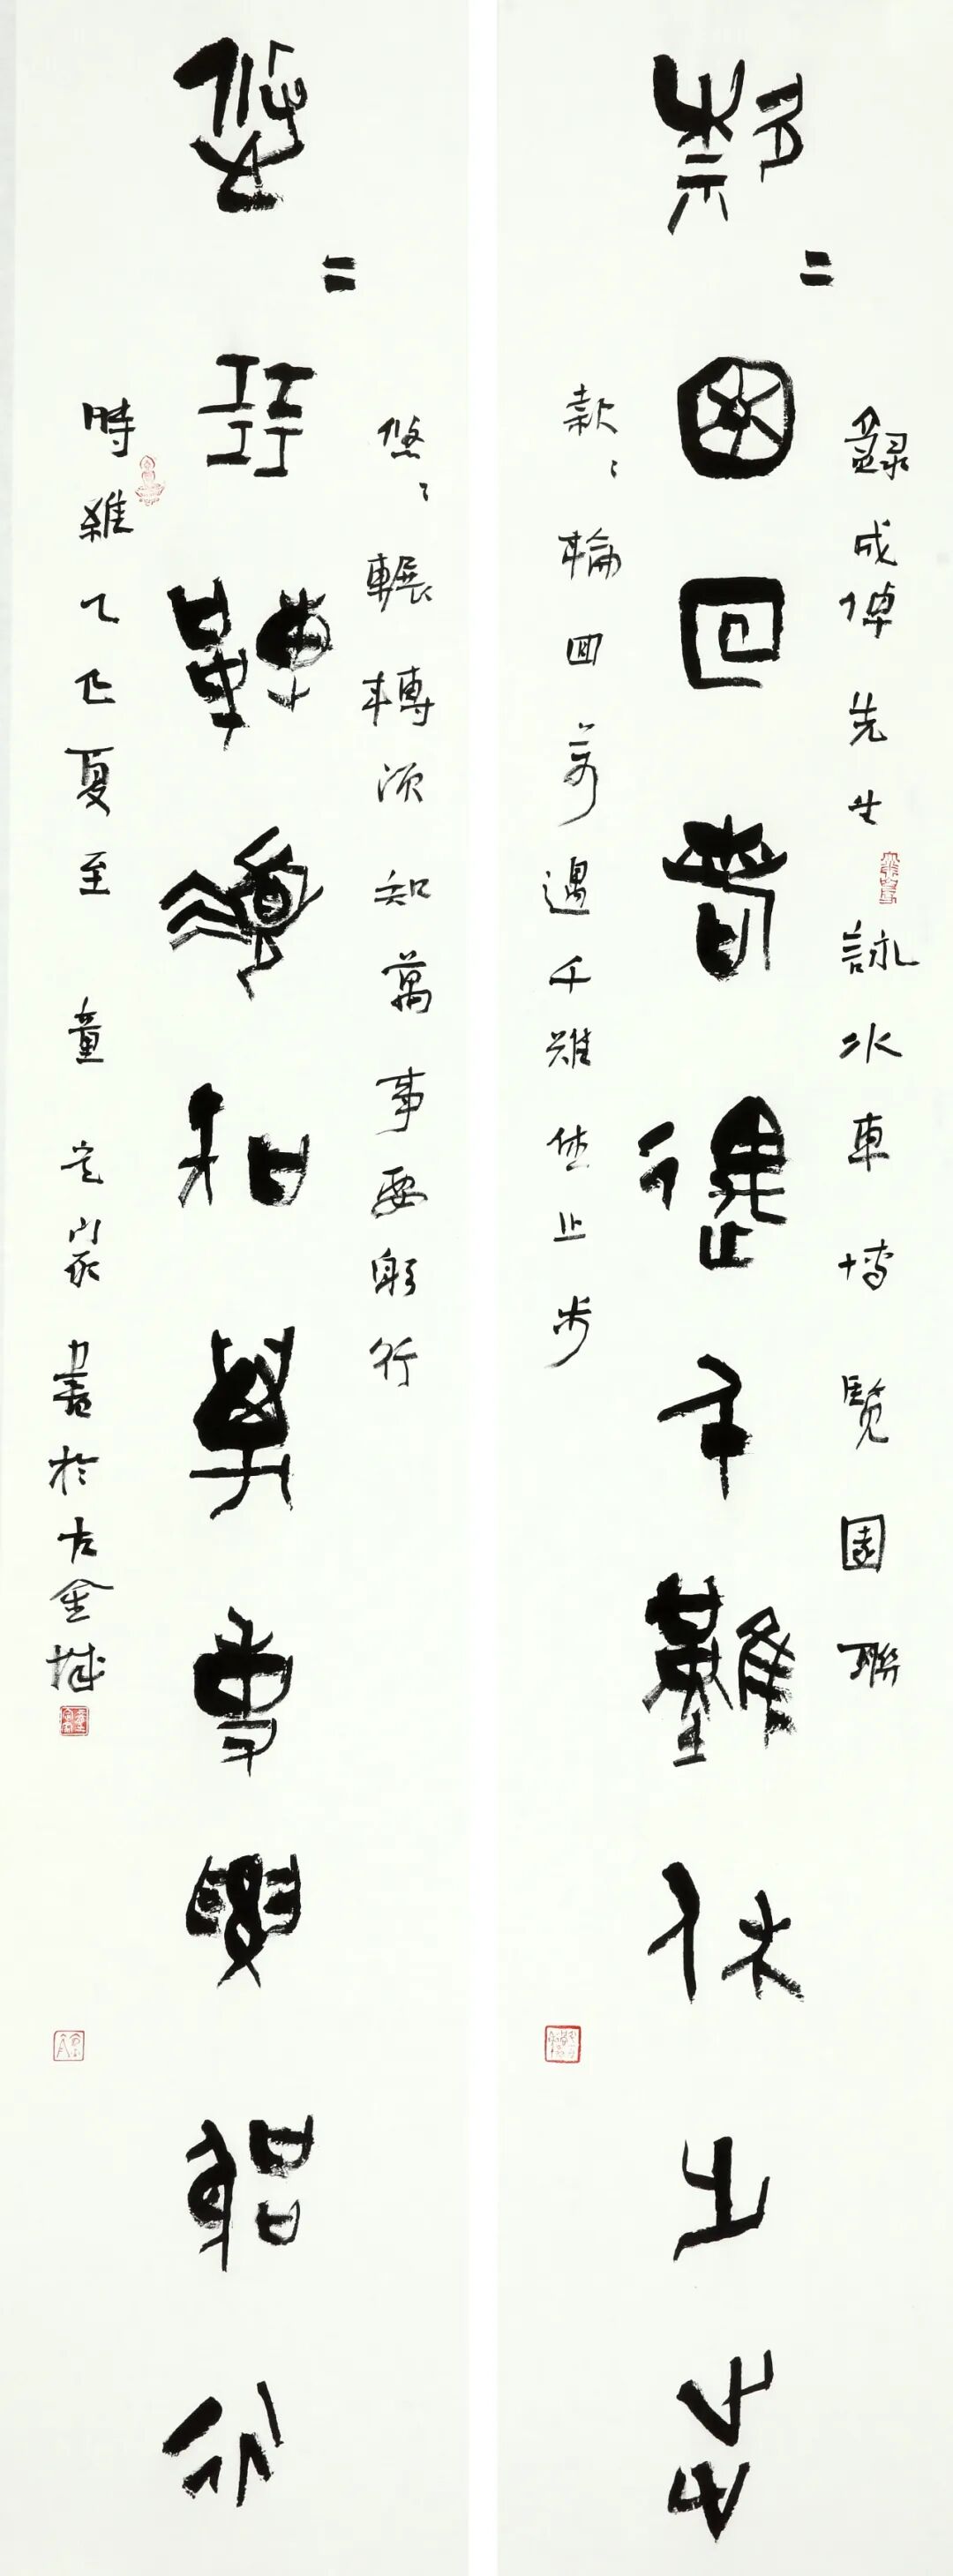 錄成倬先生詠水車博覽園聯
款=輪回遇千難休止步
款〻輪回遇千難休止步
悠〻輾轉須知萬事要躬行
悠=輾轉須知萬事要躬行
時維乙巳夏至 童 書於古金城